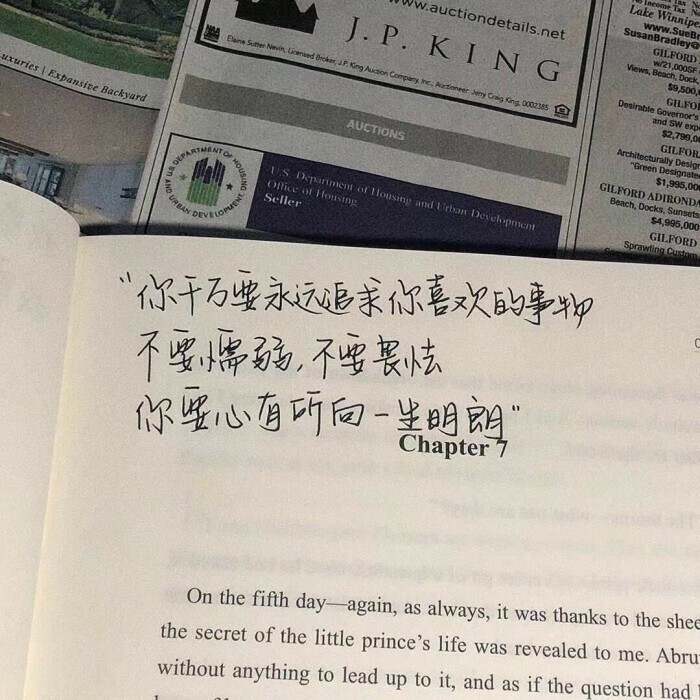 www.auctiondetails.net
J.P. KING
Elaine Sutter Nevin, Licensed Broker, J.P. King Auction Company, Inc.; Auctioneer: Jerry Craig King, 0002385
uxuries | Expansive Backyard
AUCTIONS
U.S. DEPARTMENT OF HOUSING AND URBAN DEVELOPMENT
U.S. Department of Housing and Urban Development
Office of Housing
Seller
No Income Tax
Lake Winnipe
www.SueBr
SusanBradley
GILFORD
w/21,000SF
Views, Beach, Dock,
$9,500,
GILFO
Desirable Governor's
and SW exp
$2,799,0
GILFOR
Architecturally Design
"Green Designate
$1,995,0
GILFORD ADIRONDA
Beach, Docks, Sunsets
$4,995,000
GILFORD
Sprawling Custom
“你千万要永远追求你喜欢的事物
不要懦弱,不要畏怯
你要心有所向一生明朗”
Chapter 7
On the fifth day—again, as always, it was thanks to the shee
the secret of the little prince's life was revealed to me. Abru
without anything to lead up to it, and as if the question had